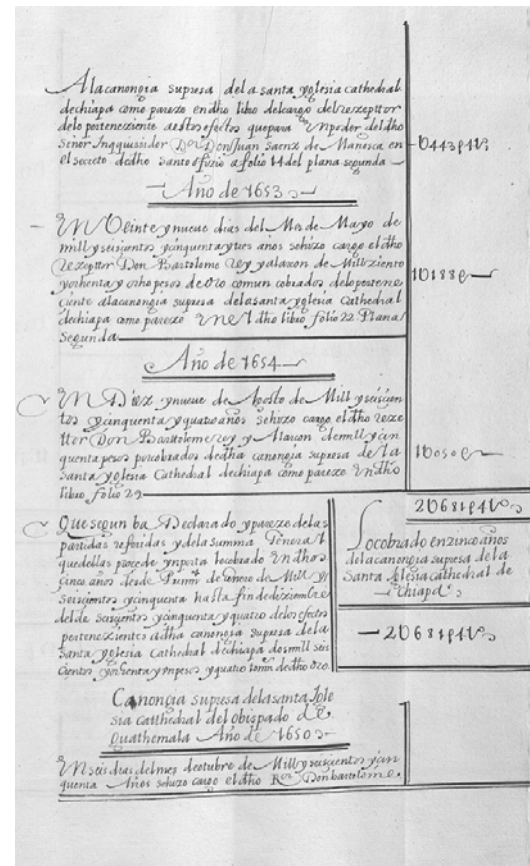 Alacanongia supresa dela santa yglesia cathedral
dechiapa como pareze en dho libro delcargo del rezepttor
delo perteneziente aestos efectos quepara Enpoder deldho
Señor Inquissidor Dor Don Juan saenz de Mañosca en
el secreto dedho santo ofizio a folio 14 del plana segunda
U443p4tos
Año de 1653
EN Veinte y nueve dias del Mes de Mayo de
mill y seiscientos y cinquenta y tres años sehizo cargo el dho
rezepttor Don Bartolome Rey y alarcon de Mill y ziento
y ochenta y ocho pesos de oro comun cobrados delo pertene
ciente alacanongia supresa dela santa yglesia Cathedral
dechiapa como pareze EneL dho libro folio 22 Plana
Segunda
1U188p
Año de 1654
EN Diez y nueve de Agosto de Mill y seiscien
tos y cinquenta y quatro años sehizo cargo el dho reze
ttor Don Barttolome rey y Alarcon demill y cin
quenta pesos porcobrados dedha canongia supresa de la
santa yglesia Cathedral dechiapa como pareze En dho
libro folio 29
1U050p
2U681p4tos
Que segun ba Declarado y pareze delas
partidas referidas y dela summa General
quedellas procede ynporta locobrado En dhos
Cinco años desde Primro de enero de Mill y
seiscientos y cinquenta hasta fin dediziembre
del de seiscientos y cinquenta y quatro delos efectos
pertenezientes adha canongia supresa dela
santa yglesia Cathedral dechiapa dosmill seis
cientos y ochenta y un pesos y quatro tomin dedho oro
Locobrado enzinco años
dela canongia supresa dela
Santa Iglesia cathedral de
Chiapa
2U681p4tos
Canongia supresa dela santa Igle
sia catthedral del obispado de
Guathemala Año de 1650
EN seis dias del mes de otubre de Mill y seiscientos y cin
quenta Años sehizo cargo el dho Ror Don bartolome